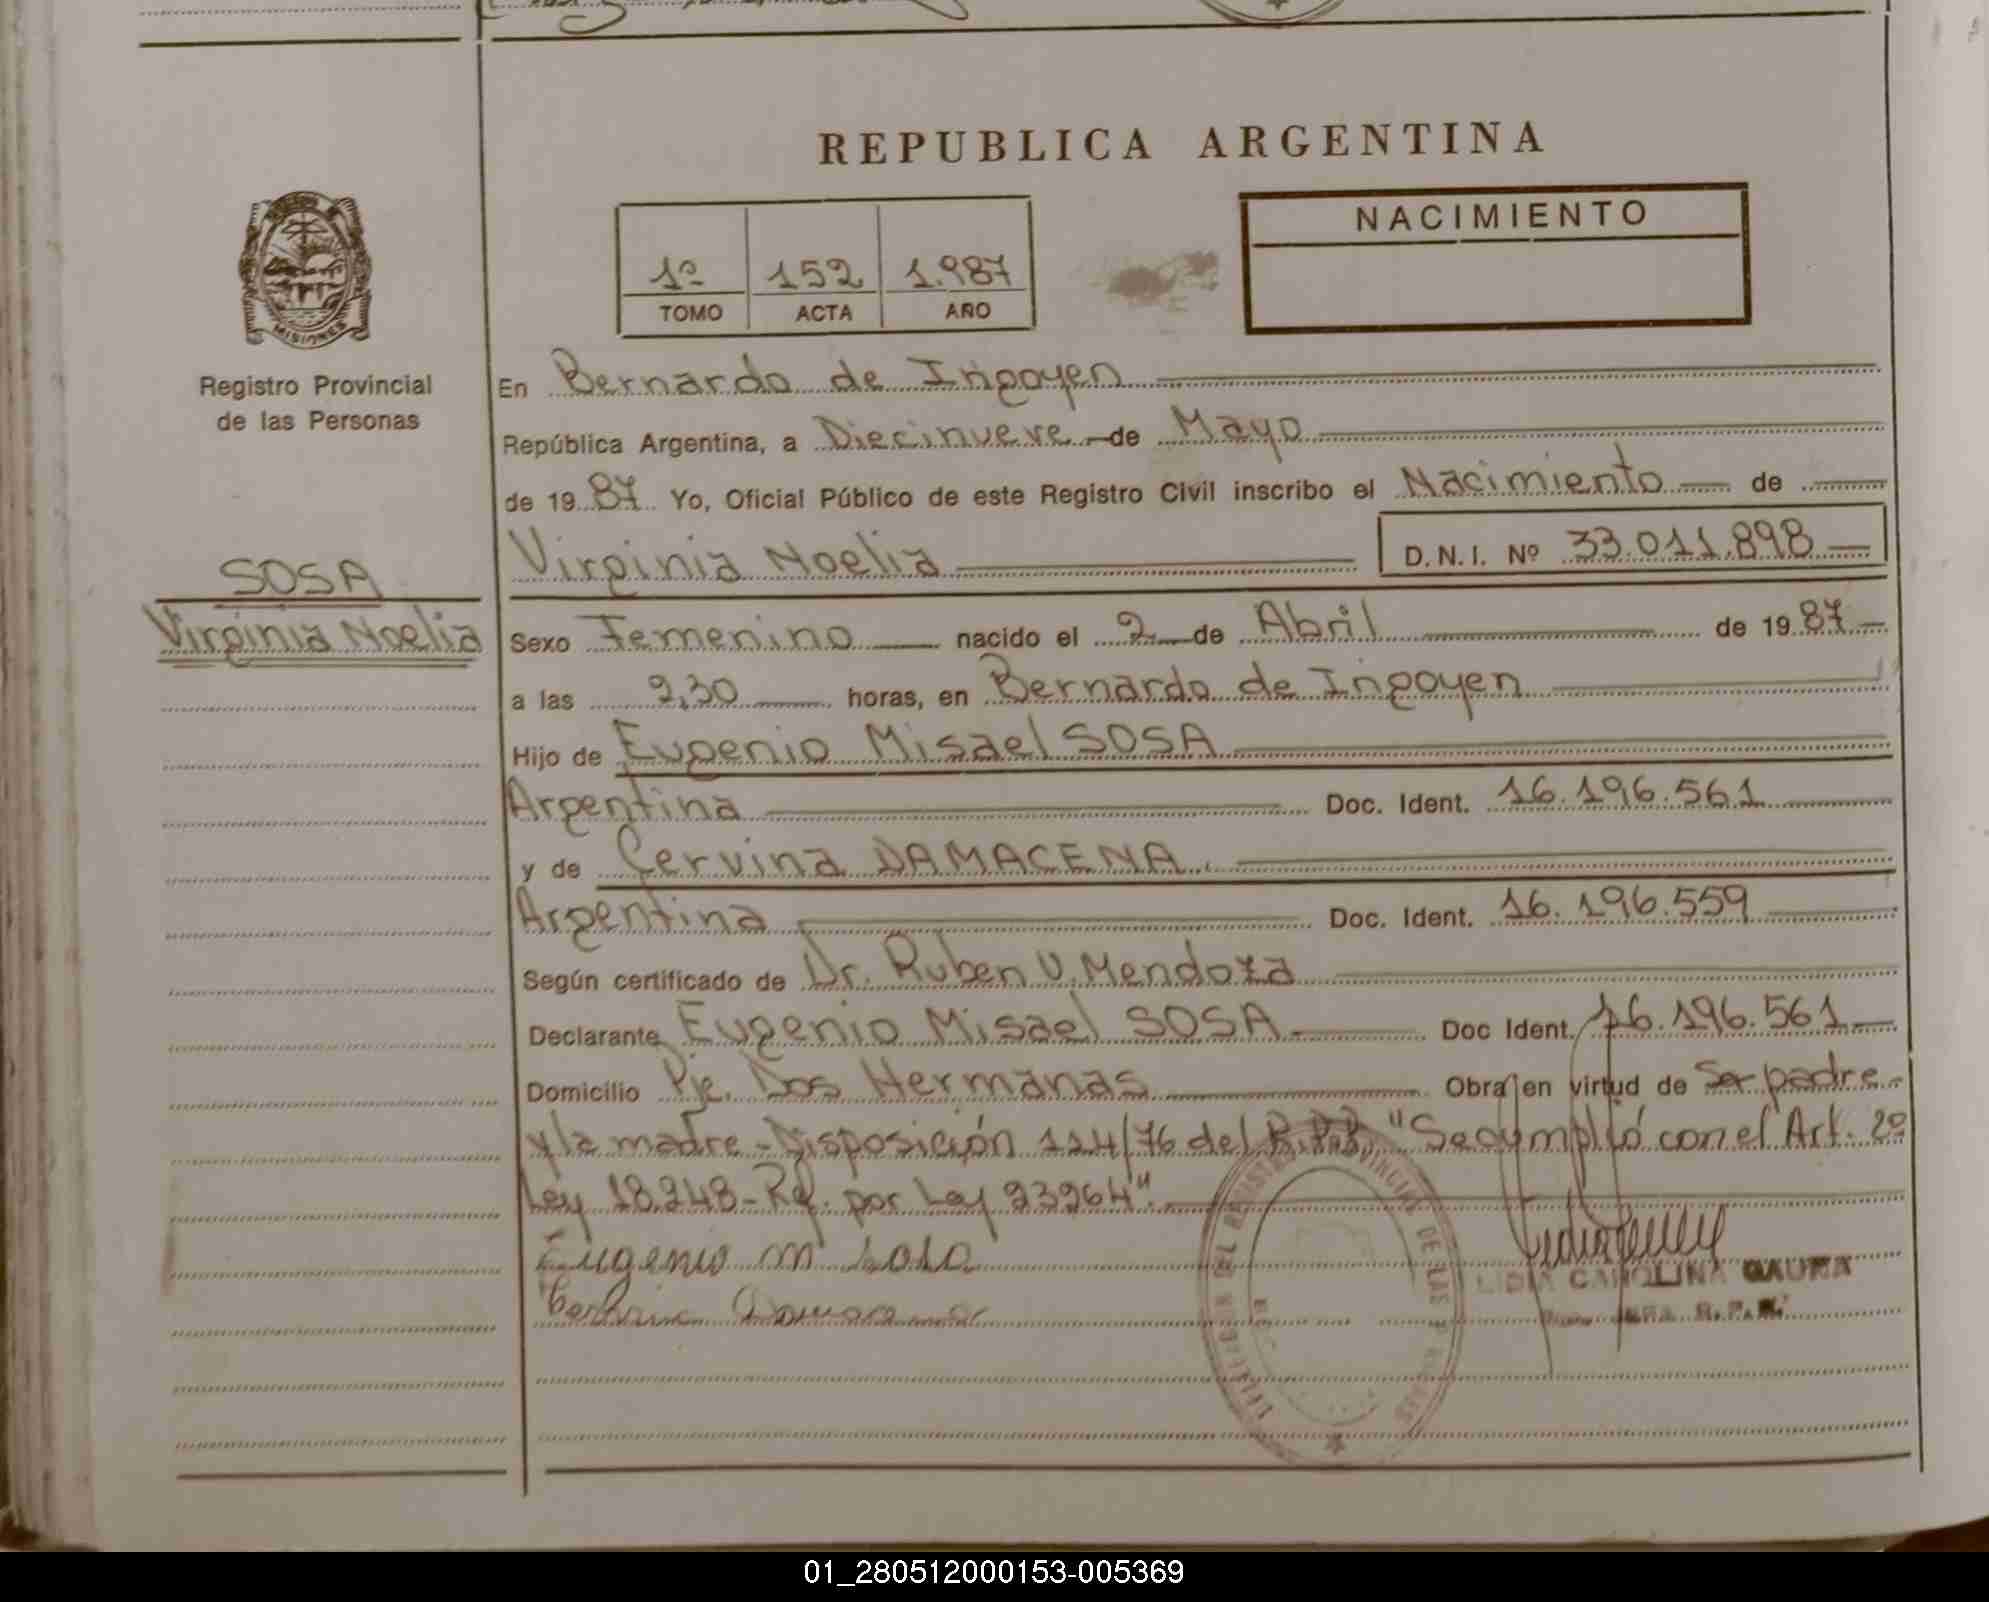 REPUBLICA ARGENTINA
MISIONES
Registro Provincial
de las Personas
1º 152 1.987
TOMO ACTA AÑO
NACIMIENTO
En Bernardo de Irigoyen
República Argentina, a Diecinueve de Mayo
de 19 87 Yo, Oficial Público de este Registro Civil inscribo el Nacimiento de
Virginia Noelia D.N.I. Nº 33.011.898
SOSA
Virginia Noelia
Sexo Femenino nacido el 2 de Abril de 19 87
a las 9,30 horas, en Bernardo de Irigoyen
Hijo de Eugenio Misael SOSA
Argentina Doc. Ident. 16.196.561
y de Cervina DAMACENA.
Argentina Doc. Ident. 16.196.559
Según certificado de Dr. Ruben V. Mendoza
Declarante Eugenio Misael SOSA Doc Ident. 16.196.561
Domicilio Pje. Dos Hermanas Obra en virtud de Ser padre
y la madre - Disposición 124/76 del R.P.P. "Se cumplió con el Art. 2º
Ley 18.248 - Rf. por Ley 23264".
Eugenio M Sosa
LIDIA CAROLINA GAUNA
01_280512000153-005369